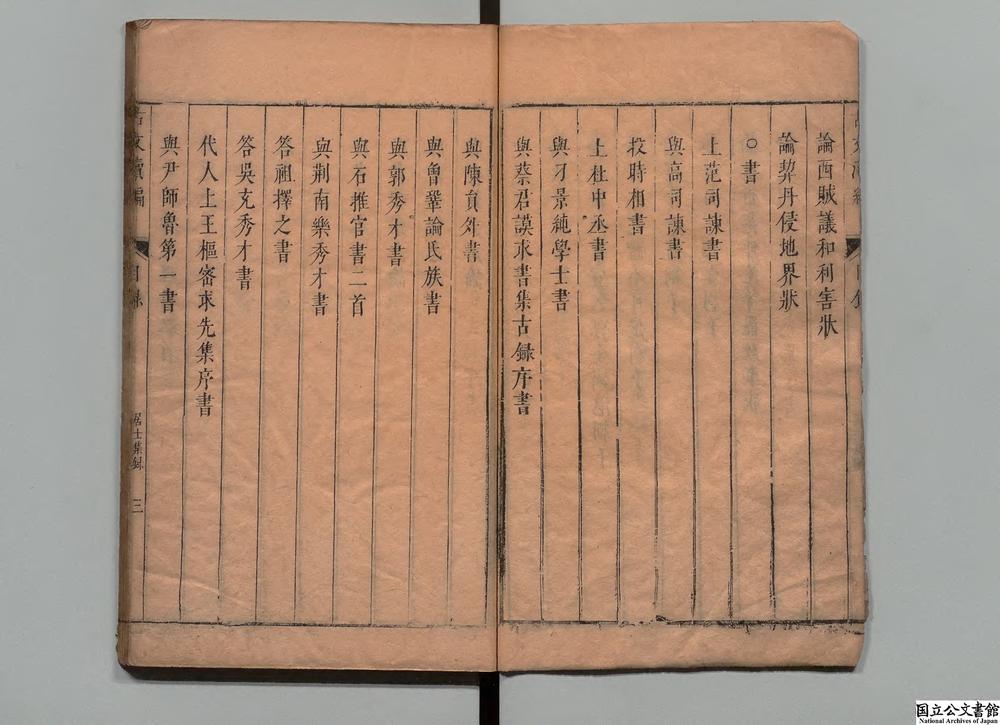 論西賊議和利害狀
論契丹侵地界狀
○書
上范司諫書
與高司諫書
投時相書
上杜中丞書
與刁景純學士書
與蔡君謨求書集古錄序書
與陳員外書
與曾鞏論氏族書
與郭秀才書
與石推官書二首
與荆南樂秀才書
答祖擇之書
答吳充秀才書
代人上王樞密求先集序書
與尹師魯第一書
目錄
居士集錄
三
国立公文書館
National Archives of Japan